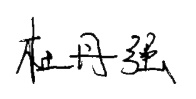 杜丹强